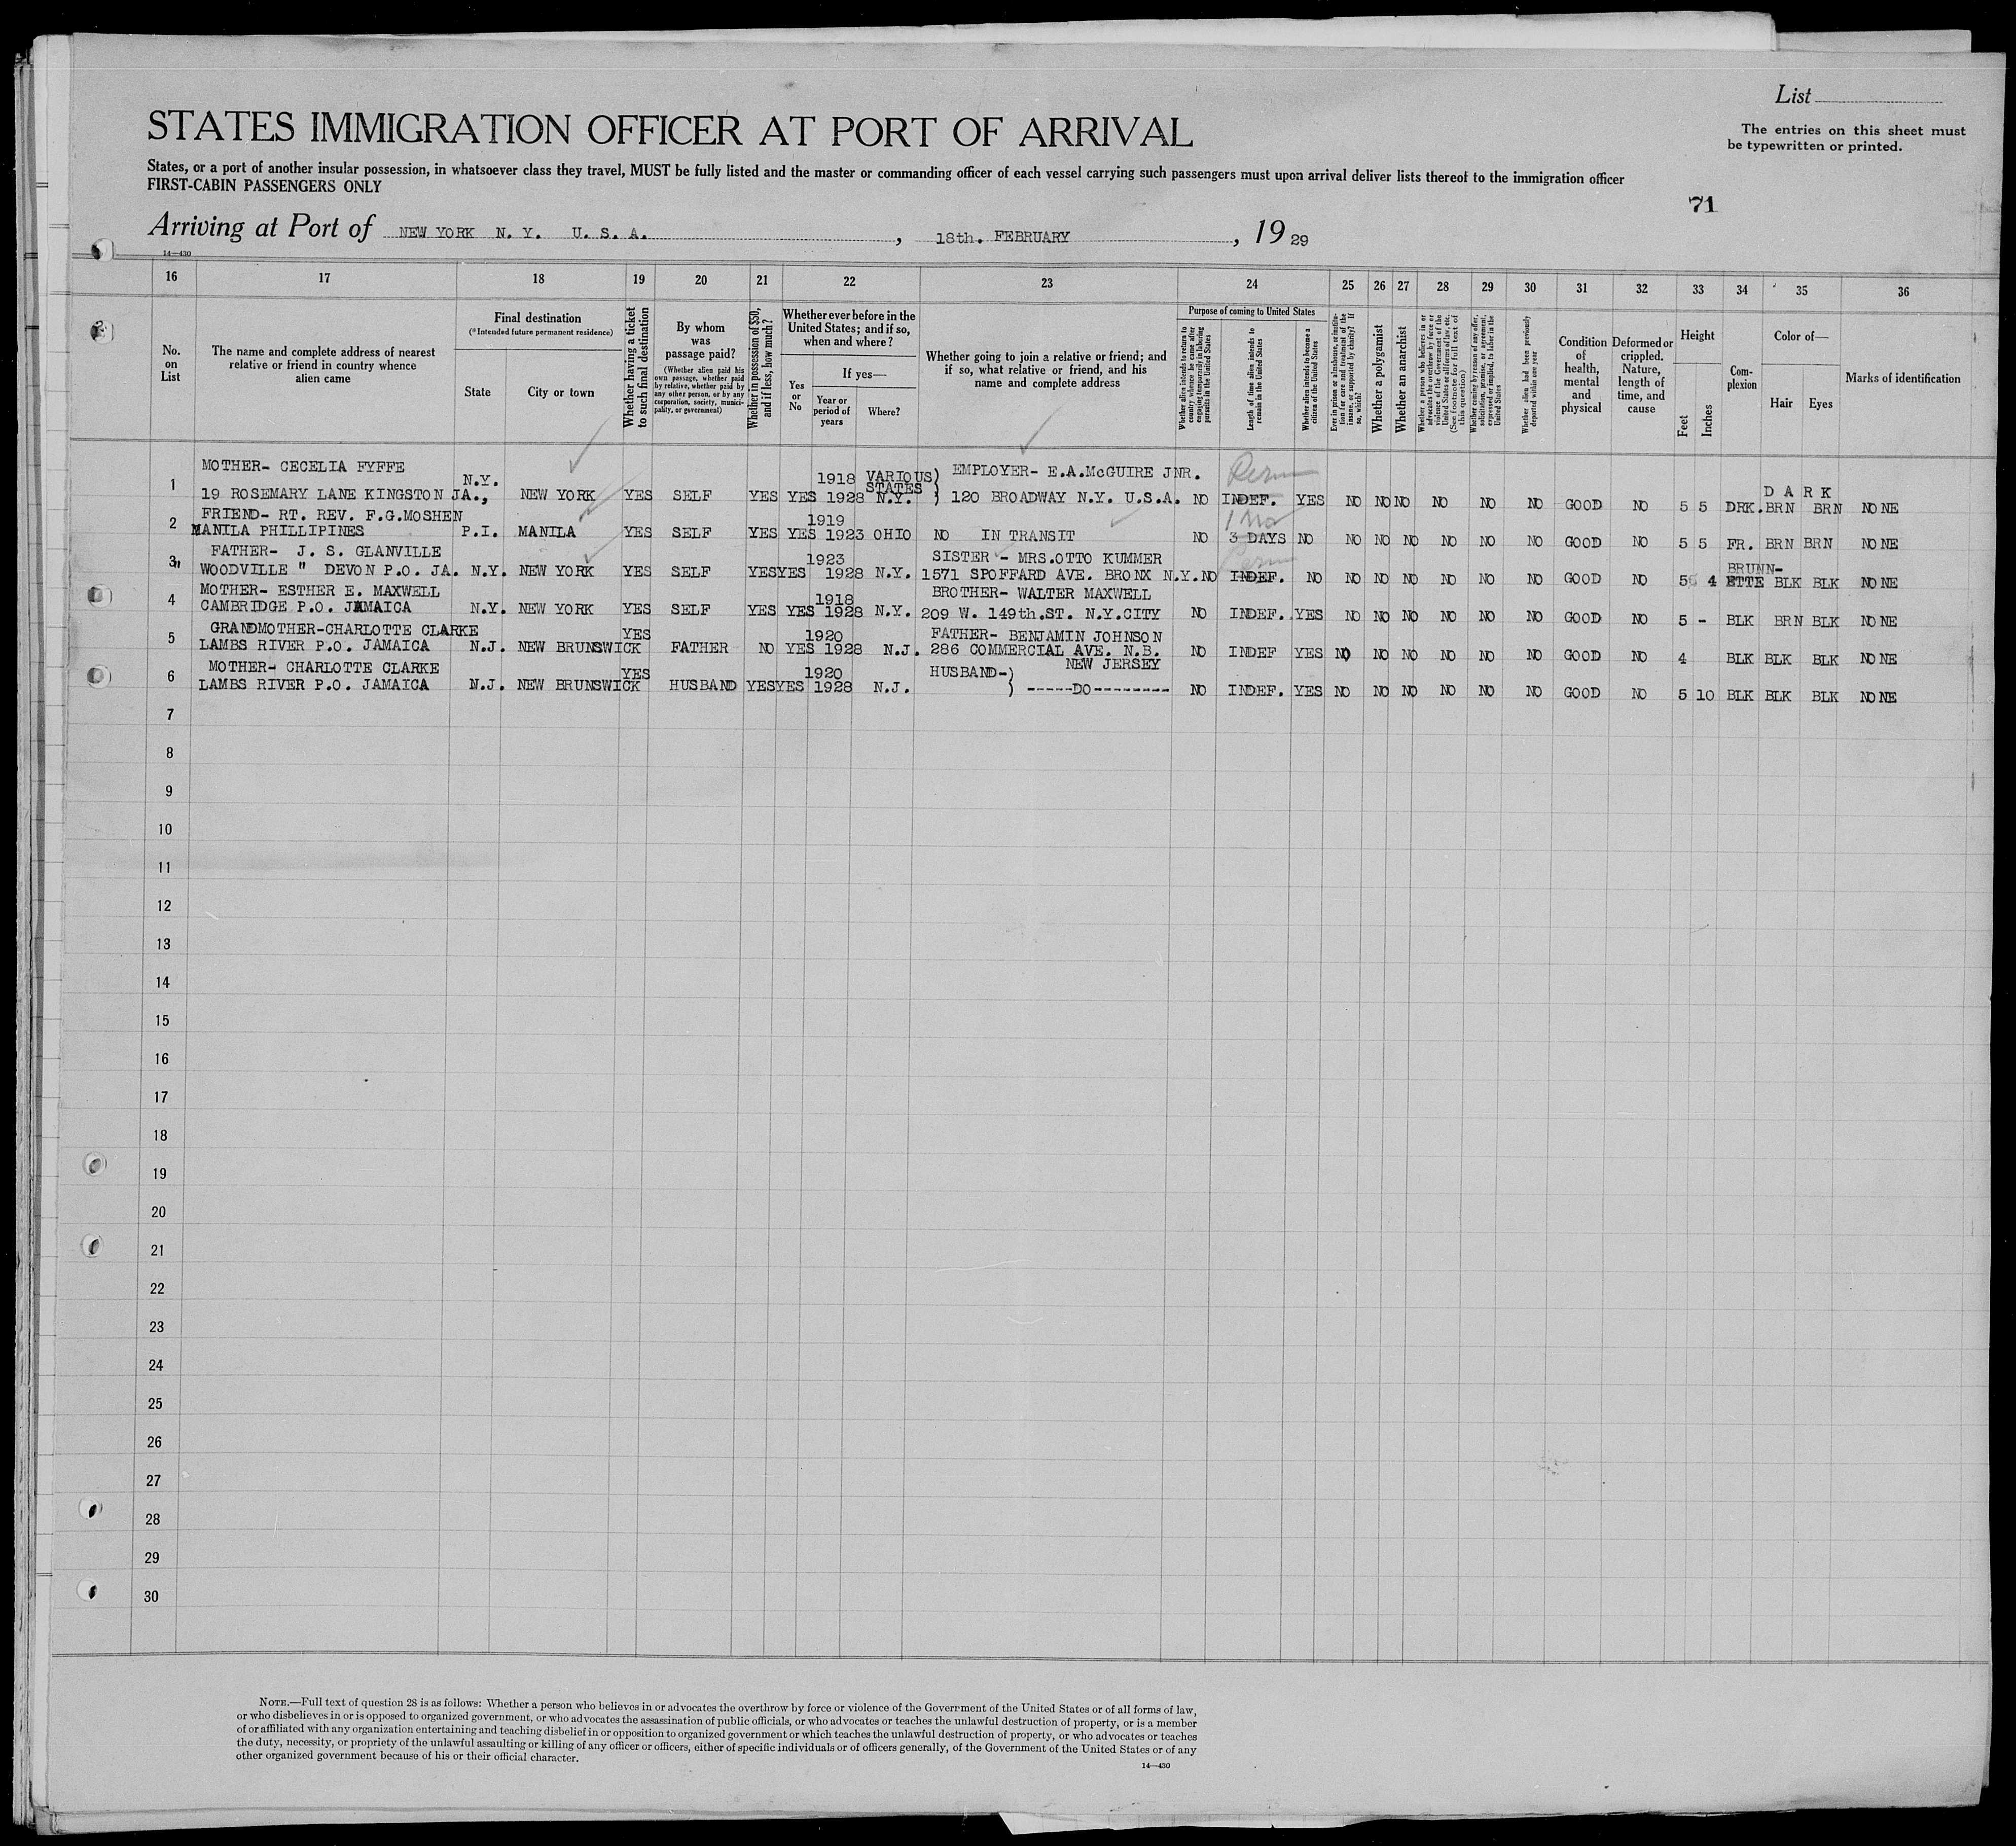 List
The entries on this sheet must
be typewritten or printed.
STATES IMMIGRATION OFFICER AT PORT OF ARRIVAL
States, or a port of another insular possession, in whatsoever class they travel, MUST be fully listed and the master or commanding officer of each vessel carrying such passengers must upon arrival deliver lists thereof to the immigration officer
FIRST-CABIN PASSENGERS ONLY
71
Arriving at Port of NEW YORK N. Y. U. S. A. , 18th. FEBRUARY , 19 29
14—430
16 17 18 19 20 21 22 23 24 25 26 27 28 29 30 31 32 33 34 35 36
No.
on
List
The name and complete address of nearest
relative or friend in country whence
alien came
Final destination
(*Intended future permanent residence)
State
City or town
Whether having a ticket
to such final destination
By whom
was
passage paid?
(Whether alien paid his
own passage, whether paid
by relative, whether paid by
any other person, or by any
corporation, society, munici-
pality, or government)
Whether in possession of $50,
and if less, how much?
Whether ever before in the
United States; and if so,
when and where?
Yes
or
No
If yes—
Year or
period of
years
Where?
Whether going to join a relative or friend; and
if so, what relative or friend, and his
name and complete address
Purpose of coming to United States
Whether alien intends to return to
country whence he came after
engaging temporarily in laboring
pursuits in the United States
Length of time alien intends to
remain in the United States
Whether alien intends to become a
citizen of the United States
Ever in prison or almshouse, or institu-
tion for care and treatment of the
insane, or supported by charity? If
so, which?
Whether a polygamist
Whether an anarchist
Whether a person who believes in or
advocates the overthrow by force or
violence of the Government of the
United States or all forms of law, etc.
(See footnote for full text of
this question)
Whether coming by reason of any offer,
solicitation, promise, or agreement,
expressed or implied, to labor in the
United States
Whether alien had been previously
deported within one year
Condition
of
health,
mental
and
physical
Deformed or
crippled.
Nature,
length of
time, and
cause
Height
Feet
Inches
Com-
plexion
Color of—
Hair
Eyes
Marks of identification
MOTHER- CECELIA FYFFE N.Y. 1918 VARIOUS) EMPLOYER- E.A.McGUIRE JNR. Perm
STATES D A R K
1 19 ROSEMARY LANE KINGSTON JA., NEW YORK YES SELF YES YES 1928 N.Y. ) 120 BROADWAY N.Y. U.S.A. NO INDEF. YES NO NO NO NO NO NO GOOD NO 5 5 DRK. BRN BRN NONE
FRIEND- RT. REV. F.G.MOSHEN 1919 1 Mo
2 MANILA PHILLIPINES P.I. MANILA YES SELF YES YES 1923 OHIO NO IN TRANSIT NO 3 DAYS NO NO NO NO NO NO NO GOOD NO 5 5 FR. BRN BRN NONE
FATHER- J. S. GLANVILLE 1923 SISTER - MRS.OTTO KUMMER Perm BRUNN-
3 WOODVILLE " DEVON P.O. JA. N.Y. NEW YORK YES SELF YES YES 1928 N.Y. 1571 SPOFFARD AVE. BRONX N.Y. NO INDEF. NO NO NO NO NO NO NO GOOD NO 5 4 ETTE BLK BLK NONE
MOTHER- ESTHER E. MAXWELL 1918 BROTHER- WALTER MAXWELL
4 CAMBRIDGE P.O. JAMAICA N.Y. NEW YORK YES SELF YES YES 1928 N.Y. 209 W. 149th.ST. N.Y.CITY NO INDEF. YES NO NO NO NO NO NO GOOD NO 5 - BLK BRN BLK NONE
GRANDMOTHER-CHARLOTTE CLARKE YES 1920 FATHER- BENJAMIN JOHNSON
5 LAMBS RIVER P.O. JAMAICA N.J. NEW BRUNSWICK FATHER NO YES 1928 N.J. 286 COMMERCIAL AVE. N.B. NO INDEF YES NO NO NO NO NO NO GOOD NO 4 BLK BLK BLK NONE
MOTHER- CHARLOTTE CLARKE YES 1920 HUSBAND-) NEW JERSEY
6 LAMBS RIVER P.O. JAMAICA N.J. NEW BRUNSWICK HUSBAND YES YES 1928 N.J. ) -----DO-------- NO INDEF. YES NO NO NO NO NO NO GOOD NO 5 10 BLK BLK BLK NONE
7
8
9
10
11
12
13
14
15
16
17
18
19
20
21
22
23
24
25
26
27
28
29
30
NOTE.—Full text of question 28 is as follows: Whether a person who believes in or advocates the overthrow by force or violence of the Government of the United States or of all forms of law,
or who disbelieves in or is opposed to organized government, or who advocates the assassination of public officials, or who advocates or teaches the unlawful destruction of property, or is a member
of or affiliated with any organization entertaining and teaching disbelief in or opposition to organized government or which teaches the unlawful destruction of property, or who advocates or teaches
the duty, necessity, or propriety of the unlawful assaulting or killing of any officer or officers, either of specific individuals or of officers generally, of the Government of the United States or of any
other organized government because of his or their official character.
14—430